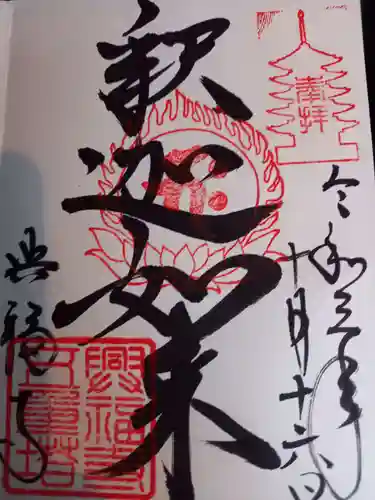 奉拝
令和三年
十月十六日
釈迦如来
興福寺
興福寺
五重塔